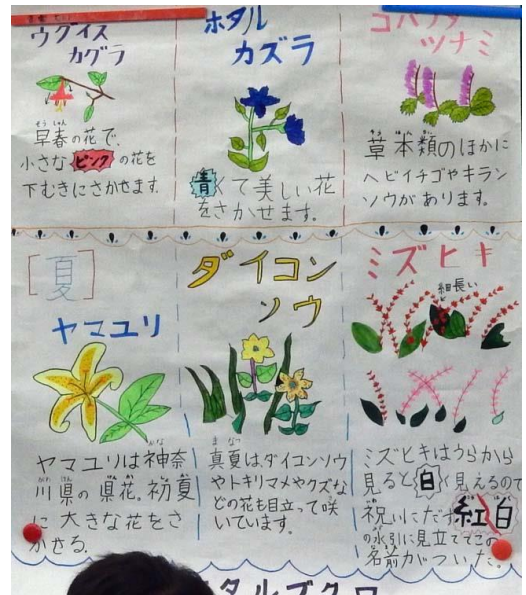 ウグイス
カグラ
早春の花で、
小さなピンクの花を
下むきにさかせます。
ホタル
カズラ
青くて美しい花
をさかせます。
ツナミ
草本類のほかに
ヘビイチゴやキラン
ソウがあります。
[夏]
ヤマユリ
ヤマユリは神奈
川県の県花。初夏
に大きな花をさ
かせる。
ダイコン
ソウ
真夏は、ダイコンソウ
やトキリマメやクズな
どの花も目立って咲
いています。
ミズヒキ
細長い
ミズヒキはうらから
見ると白く見えるので
祝いにだす紅白
の水引に見立ててこの
名前がついた。